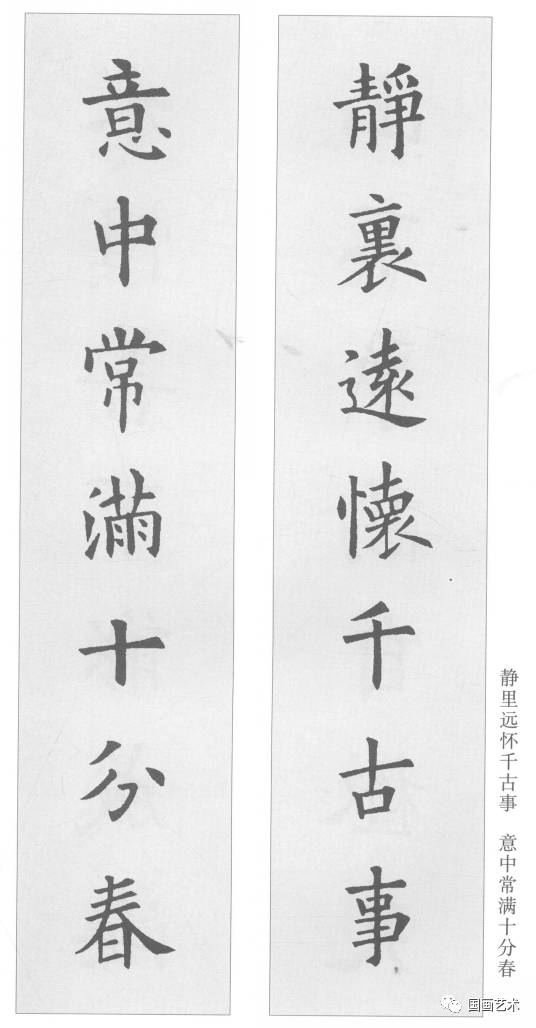 靜裏遠懷千古事
意中常滿十分春
静里远怀千古事　意中常满十分春
国画艺术